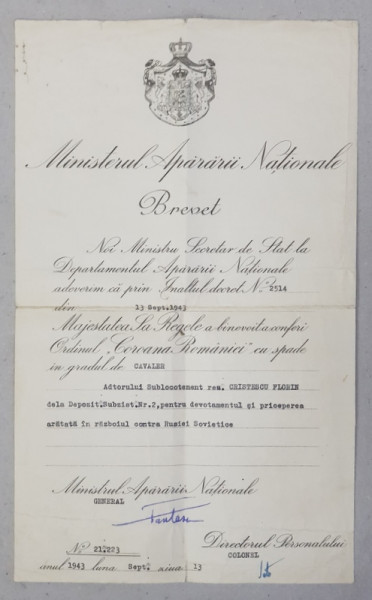 Ministerul Apărării Naționale
Brevet
Noi Ministru Secretar de Stat la
Departamentul Apărării Naționale
adeverim că prin Înaltul decret No. 2514
din 13 Sept.1943
Majestatea Sa Regele a binevoit a conferi
Ordinul "Coroana României" cu spade
în gradul de CAVALER
Adtorului Sublocotenent rez. CRISTESCU FLORIN
dela Depozit.Subzist.Nr.2,pentru devotamentul și priceperea
arătată în războiul contra Rusiei Sovietice
Ministrul Apărării Naționale
GENERAL
No. 21.223
anul 1943 luna Sept. ziua 13
Directorul Personalului
COLONEL